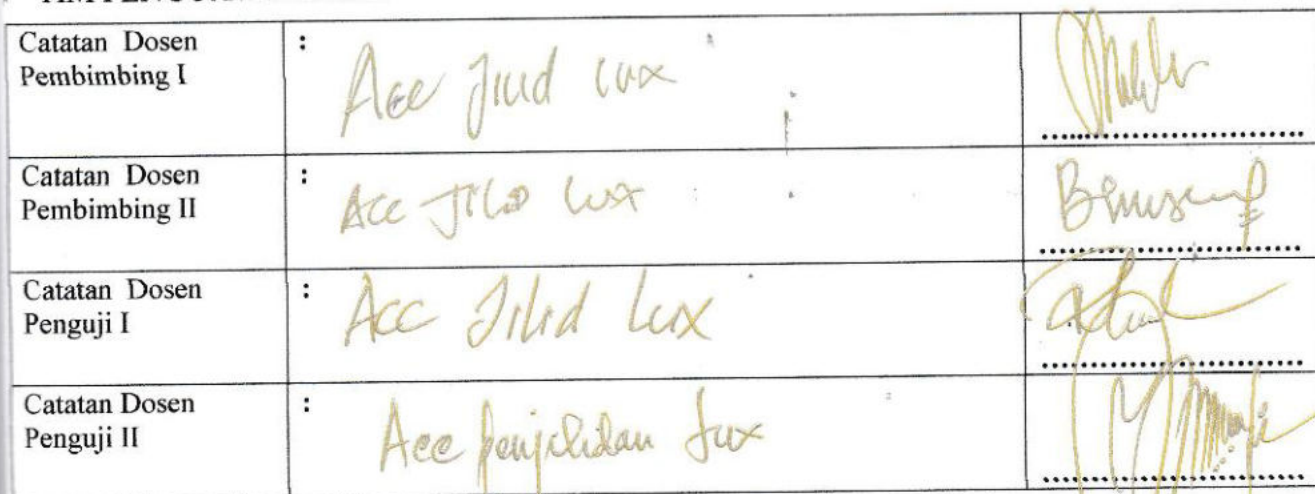 Catatan Dosen
Pembimbing I
: Acc Jilid lux
Catatan Dosen
Pembimbing II
: Acc Jilid lux
Catatan Dosen
Penguji I
: Acc Jilid lux
Catatan Dosen
Penguji II
: Acc penjilidan lux